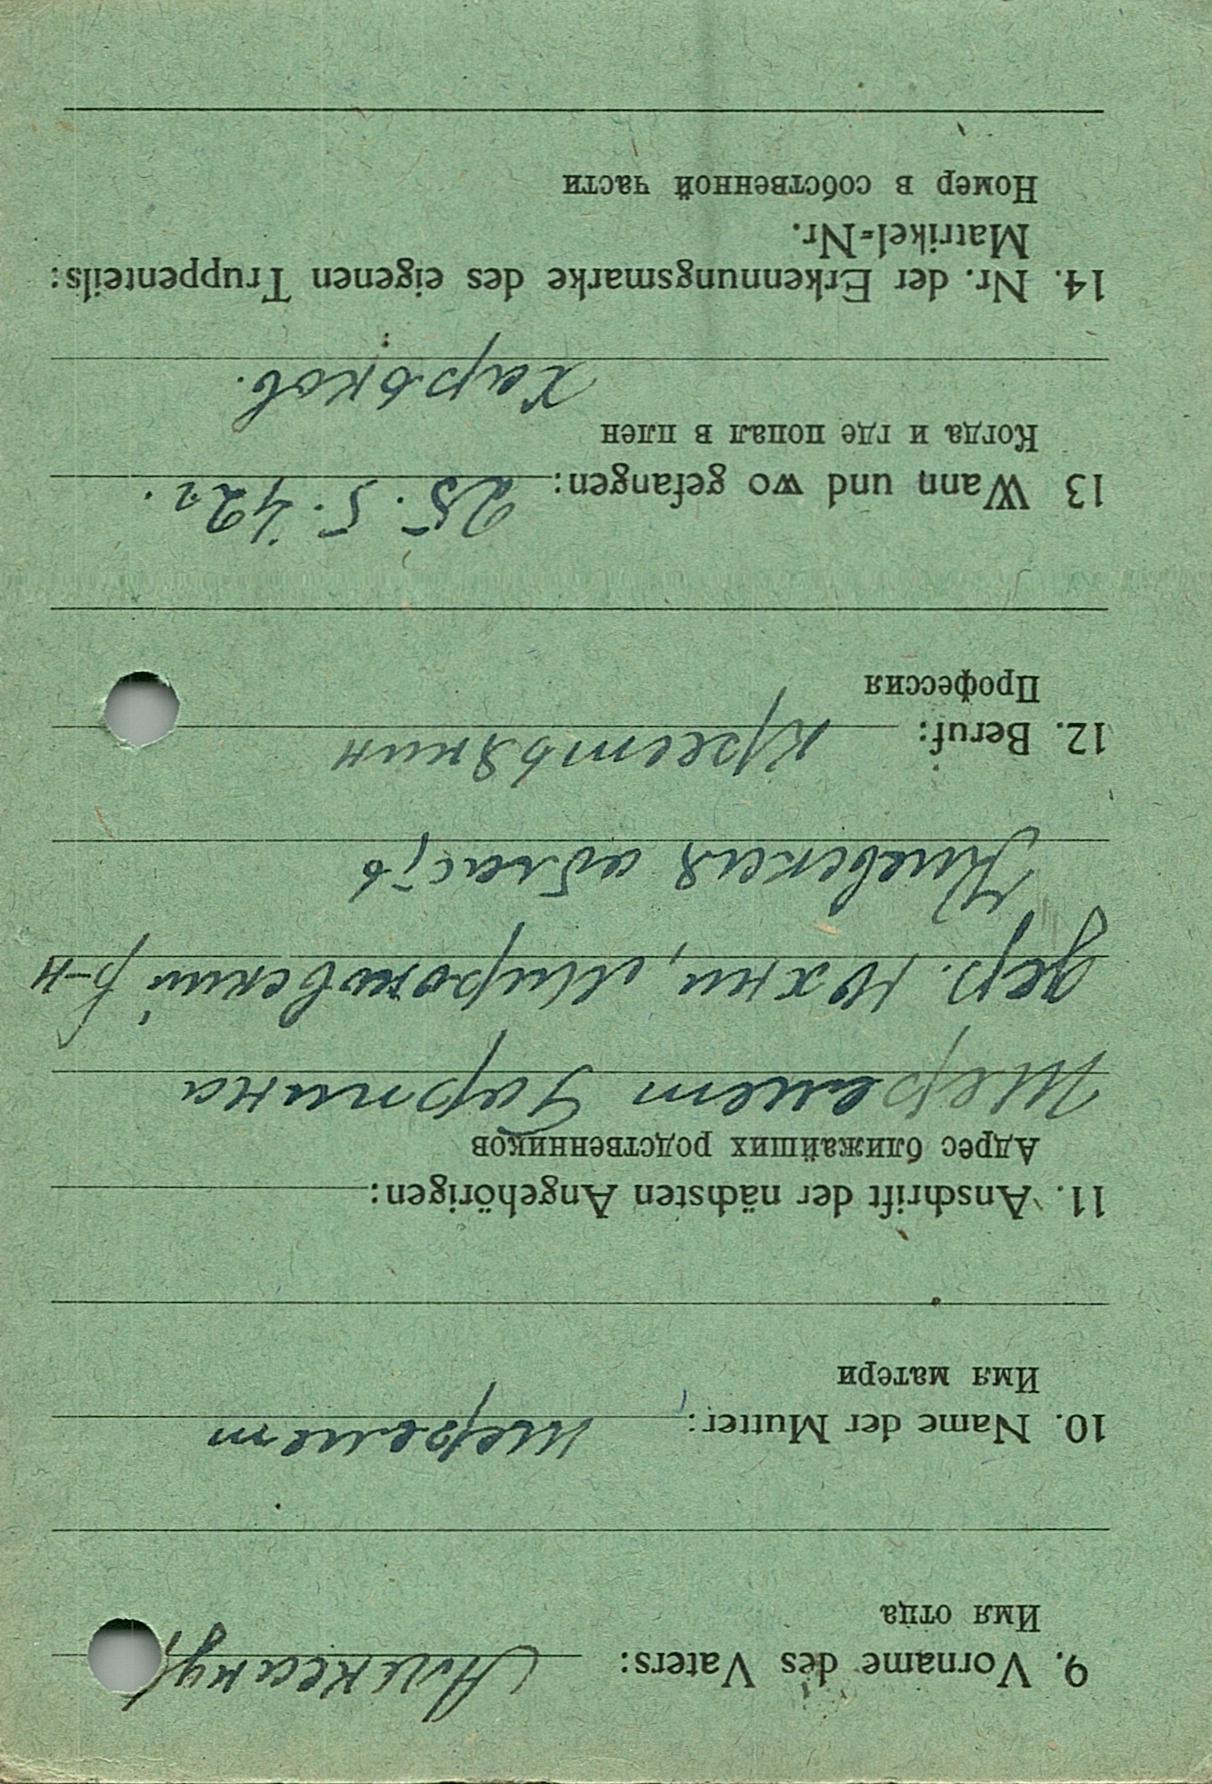 9. Vorname des Vaters: Александр
Имя отца
10. Name der Mutter: шеремет
Имя матери
11. Anschrift der nächsten Angehörigen:
Адрес ближайших родственников
Шеремет Гарпина
дер. Юхни, Мироновский р-н
Киевская область
12. Beruf: крестьянин
Профессия
13 Wann und wo gefangen: 25.5.42г.
Когда и где попал в плен
Харьков.
14. Nr. der Erkennungsmarke des eigenen Truppenteils:
Matrikel-Nr.
Номер в собственной части